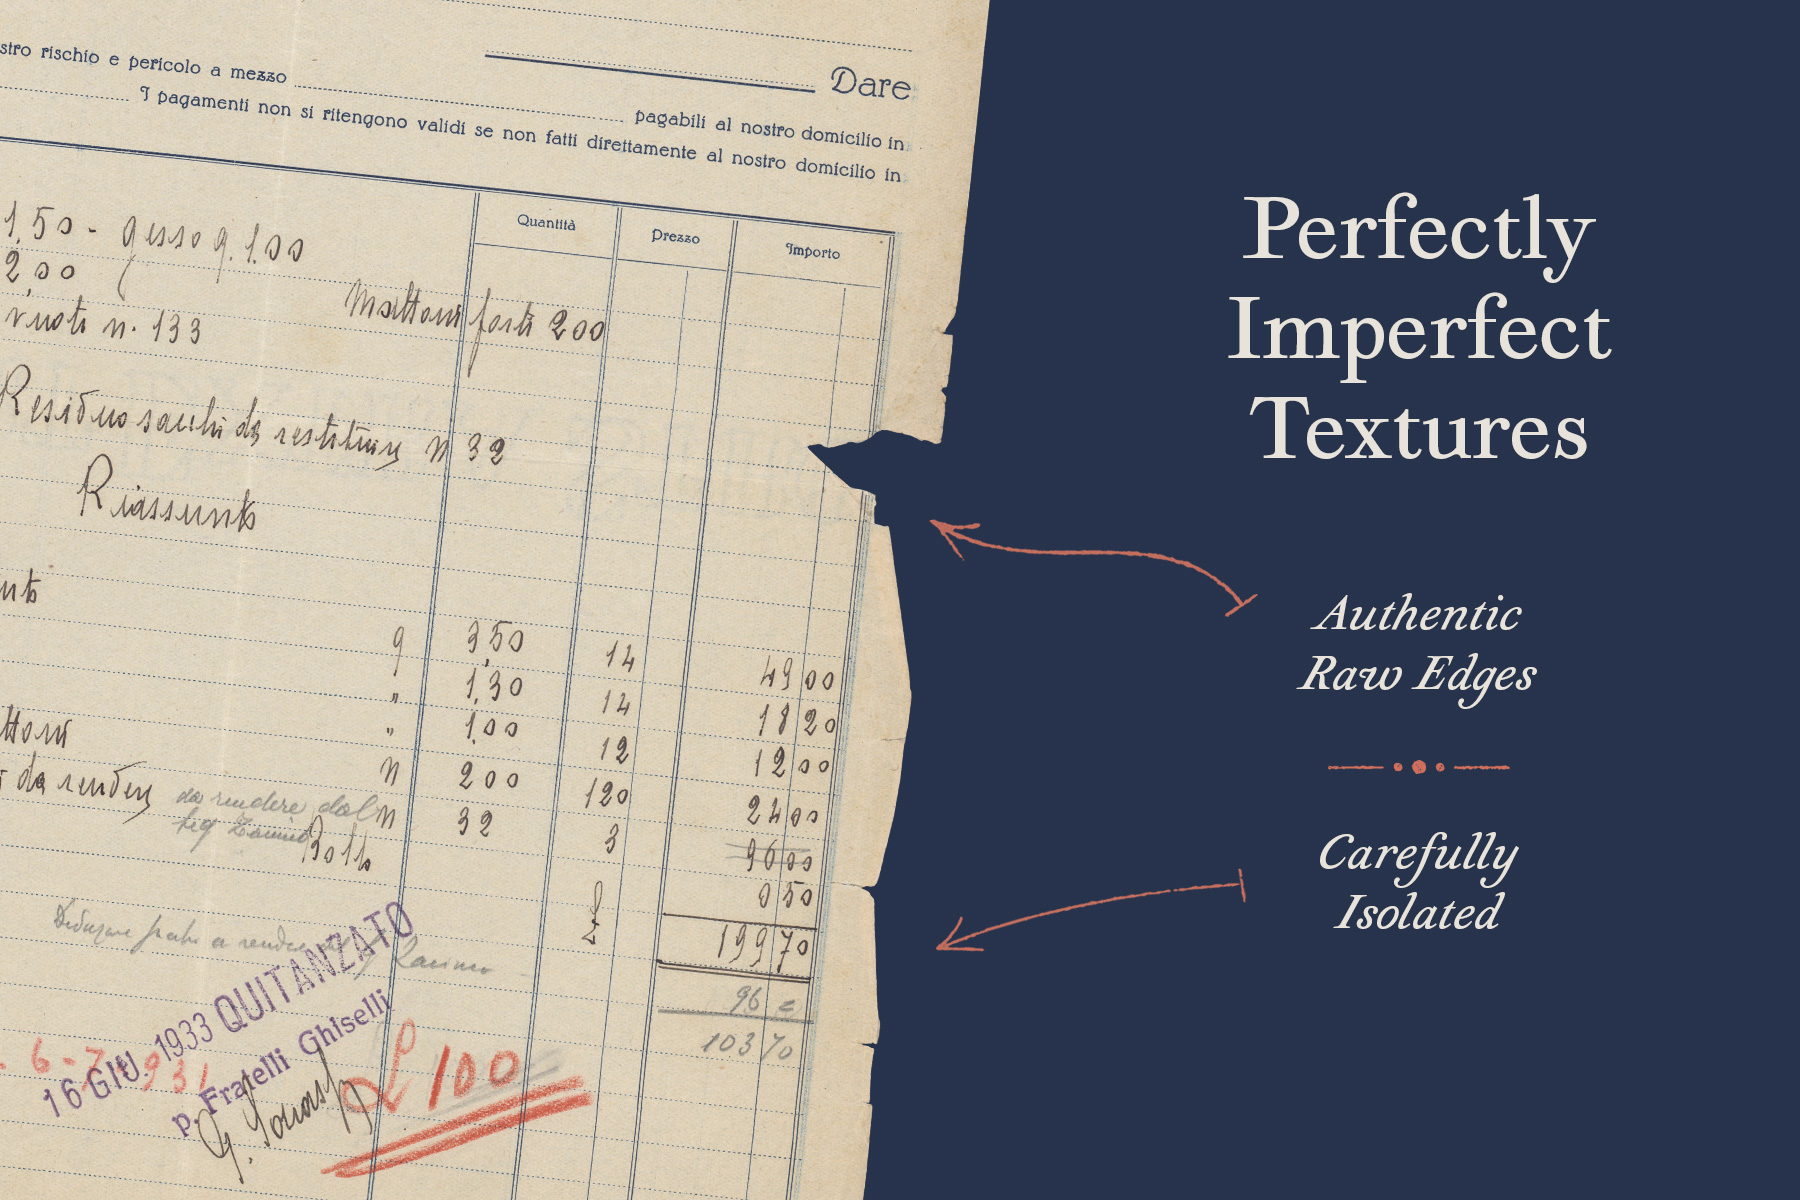 Dare
stro rischio e pericolo a mezzo
pagabili al nostro domicilio in
I pagamenti non si ritengono validi se non fatti direttamente al nostro domicilio in
Quantità Prezzo Importo
1,50 - gesso q. 1.00
2,00
vuoti n. 133
Mattoni forti 200
Residuo sacchi da restituire N 32
Riassunto
q 3,50 14 49 00
" 1,30 14 18 20
" 1,00 12 12 00
ttoni N 200 120 24 00
da rendere N 32 3 96 00
da rendere dal
Bollo 0 50
199 70
96 =
103 70
16 GIU. 1933 QUITANZATO
p. Fratelli Ghiselli
6-7-931
£ 100
Perfectly
Imperfect
Textures
Authentic
Raw Edges
Carefully
Isolated